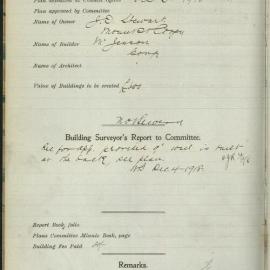 Plan submitted to Council Office Dec 3 1918
Plan approved by Committee
Name of Owner J.D. Stewart
Mount St Coogee
Name of Builder W. Jesson
Name of Architect
Value of Buildings to be erected £200
Building Surveyor's Report to Committee.
Rec for app. provided 9" wall is built
at the back, see plan
Dec 4-1918
Report Book, folio
Plans Committee Minute Book, page
Building Fee Paid
Remarks.